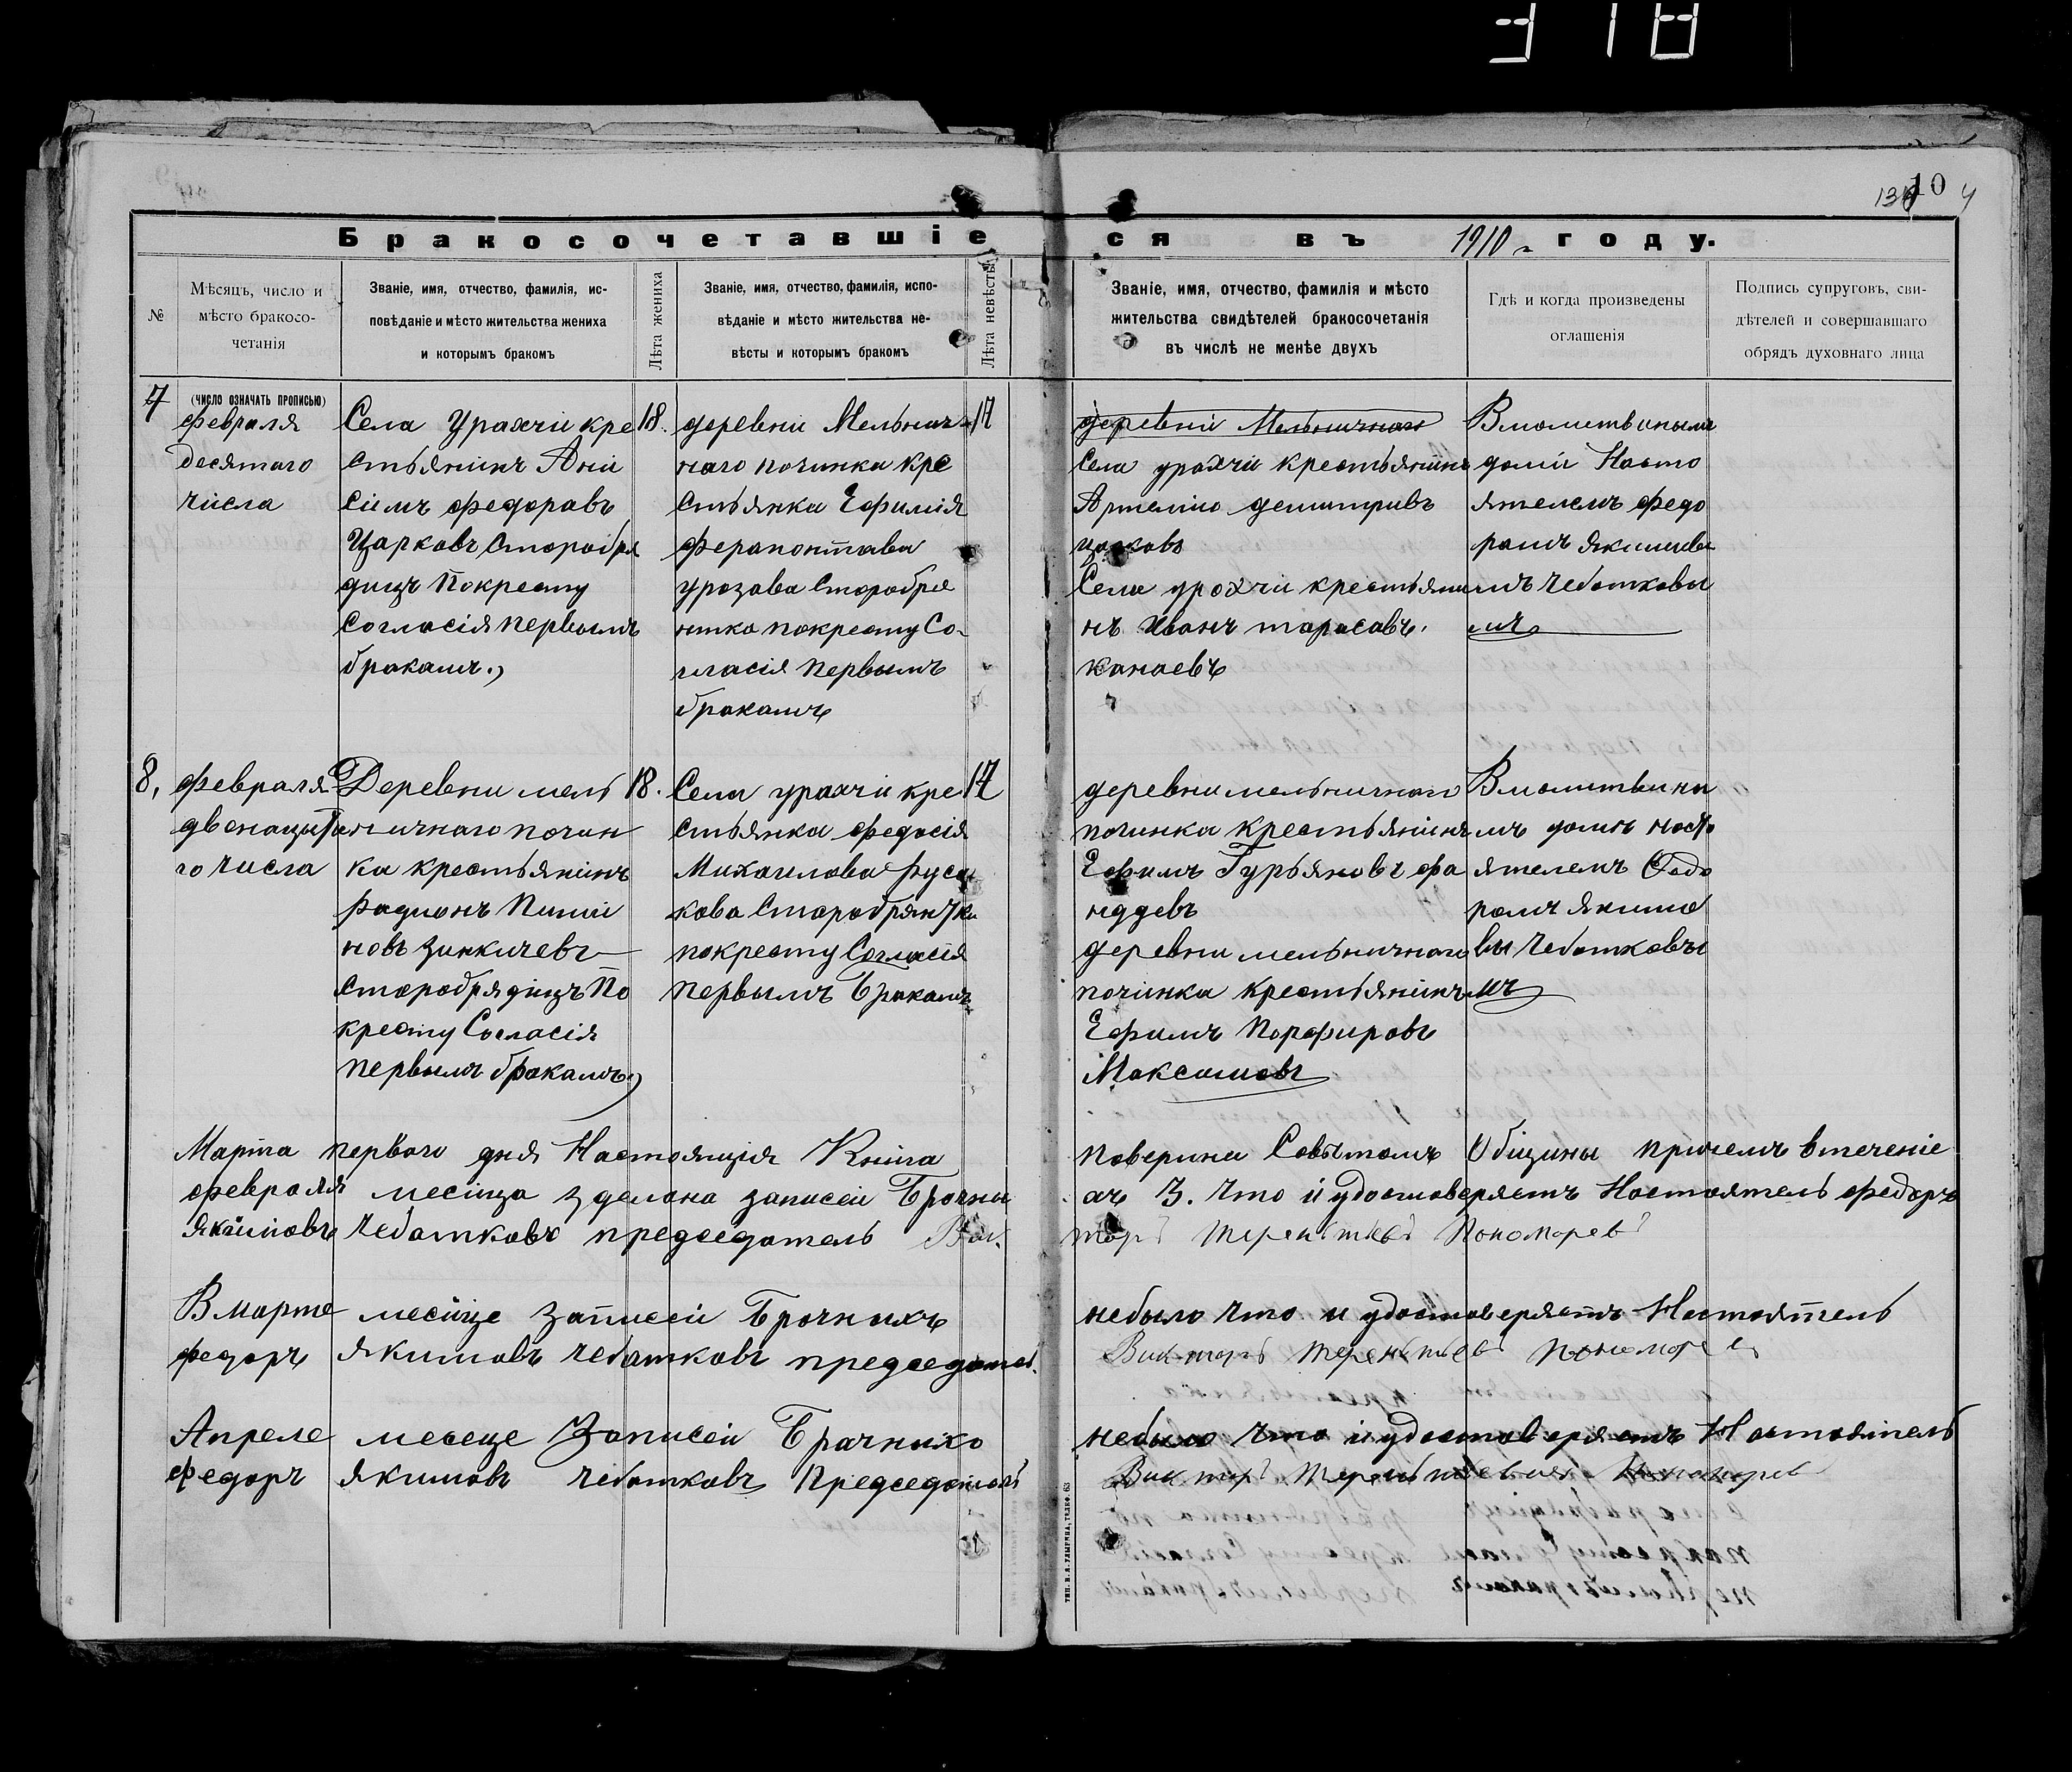 318
10
Бракосочетавшіеся въ 1910 г году.
№
Мѣсяцъ, число и
мѣсто бракосо-
четанія
Званіе, имя, отчество, фамилія, ис-
повѣданіе и мѣсто жительства жениха
и которымъ бракомъ
Лѣта жениха
Званіе, имя, отчество, фамилія, испо-
вѣданіе и мѣсто жительства не-
вѣсты и которымъ бракомъ
Лѣта невѣсты
Званіе, имя, отчество, фамилія и мѣсто
жительства свидѣтелей бракосочетанія
въ числѣ не менѣе двухъ
Гдѣ и когда произведены
оглашенія
Подпись супруговъ, сви-
дѣтелей и совершавшаго
обрядъ духовнаго лица
7
(число означать прописью)
февраля
десятаго
числа
Села Урахчи кре
стьянинъ Ани
сімъ федоравъ
Царковъ Старобря
дицъ Покресту
Согласія первымъ
бракамъ.
18.
деревни Мельнич
наго починка кре
стьянка Ефимія
ферапонтава
урозава Старобря
нтка покресту Со-
гласія первымъ
бракамъ
17
деревни Мельничнаго
Села урахчи крестьянинъ
Артемию демитривъ
царковъ
Села урахчи крестьяни
нъ Иванъ тарасавъ
канаевъ
Вмолитвинымъ
доми Насто
ятелемъ федо
рамъ якимивы
мъ Чебатковы
мъ
8,
февраля
двенацита
го числа
Деревни мель
ничнаго почин
ка крестьянинъ
Радионъ Пими
новъ Зинкичевъ
Старобрядицъ По
кресту Согласія
первымъ бракамъ
18.
Села урахчи кре
стьянка федосія
Михаилова Руса
кова Старобрянтка
покресту Согласія
первымъ Бракамъ
17
деревни мельничнаго
починка крестьянинъ
Ефимъ Гурьяновъ фа
ддевъ
деревни мельничнаго
починка крестьянинъ
Ефимъ Порфировъ
Максимовъ
Вмолитвина
мъ домъ насто
ятелемъ Федо
рамъ якимо
вы Чебатковы
мъ
Марта первого дня Настоящія Книга поверина Совѣтомъ Общины причемъ втеченіе
февраля месінца зделана записеи Брачны ахъ 3. что и удостоверяетъ Настоятель федоръ
якимовъ Чебатковъ председатель Виктаръ Терентьевъ Пономаревъ
Вмарте месіце записеи Брачныхъ небыло что и удостоверяетъ Настоятель
федоръ якимовъ чебатковъ председатель Виктаръ Терентьевъ Пономарев
Апреле месеце Записеи Брачныхъ небыло что и удостоверяетъ Настоятель
федоръ якимовъ чебатковъ Председатель Виктаръ Терентьевичъ Понамарев